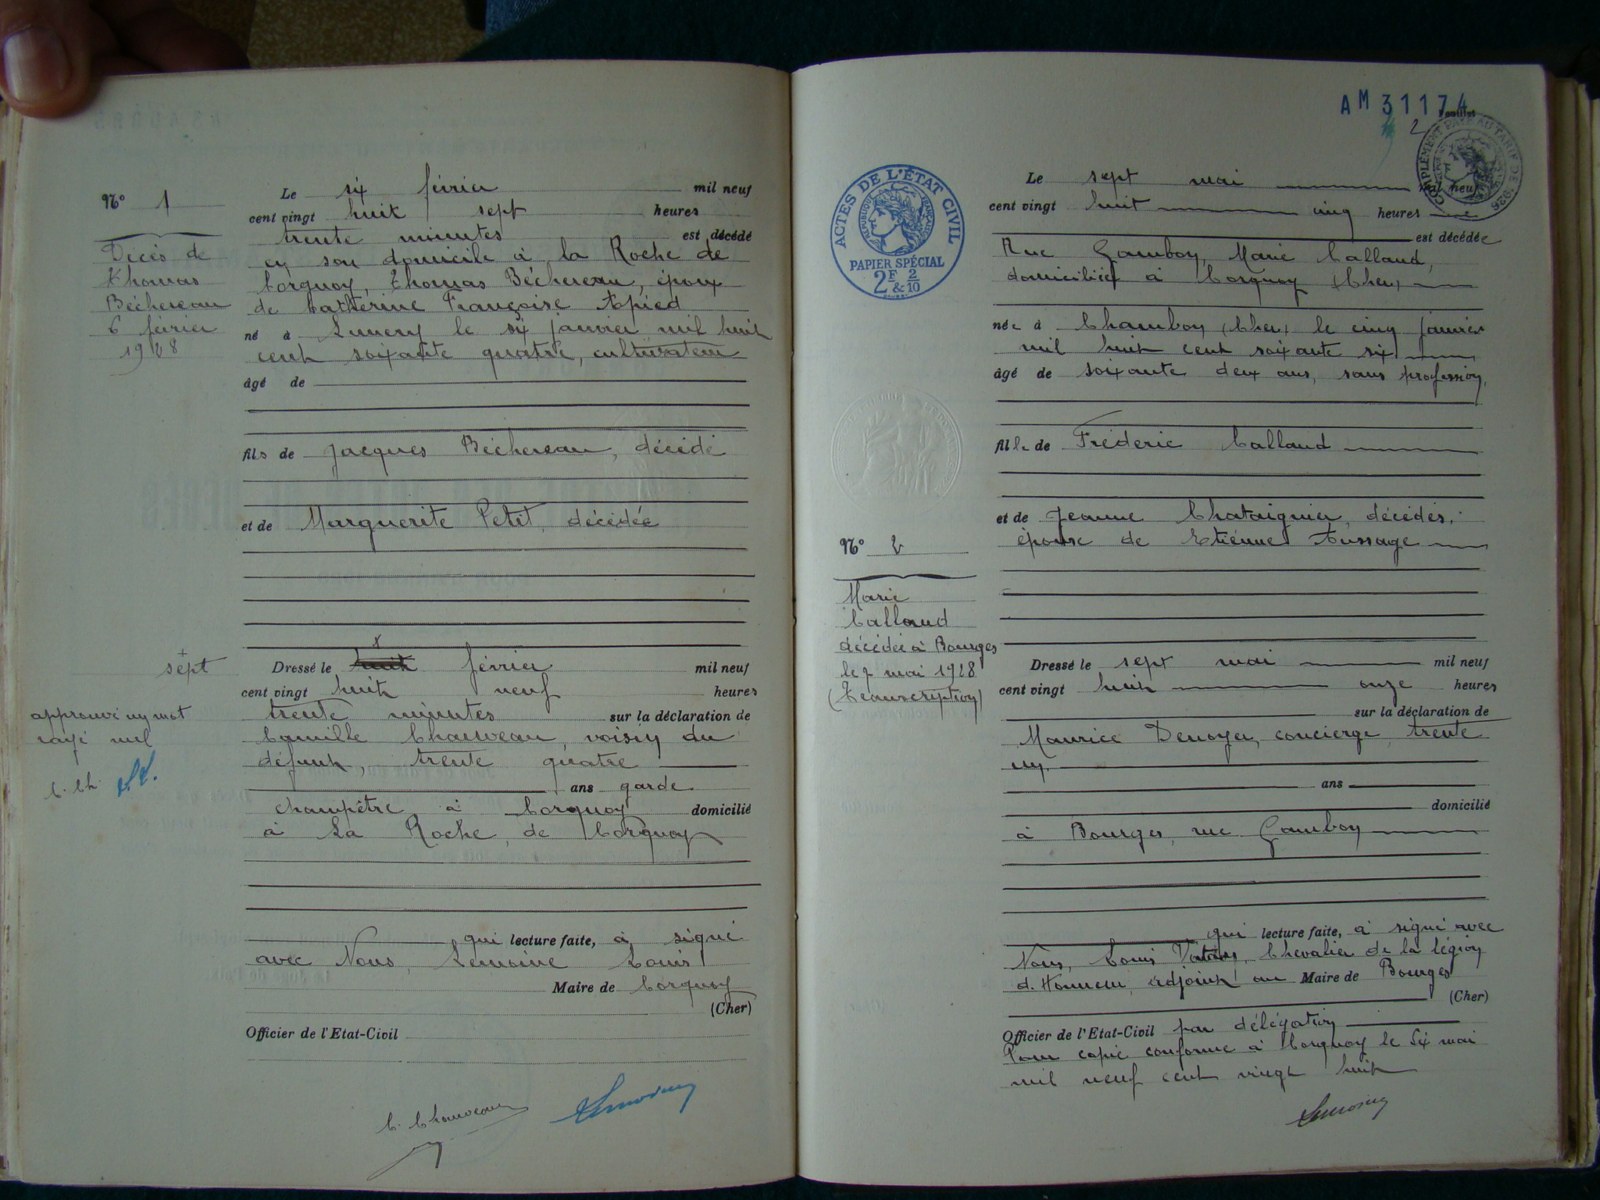 N° 1
Décès de
Thomas
Béchereau
6 février
1928
Le six février mil neuf
cent vingt huit sept heures
trente minutes est décédé
en son domicile à la Roche de
Corquoy, Thomas Béchereau, époux
de Catherine Françoise Apied
né à Lunery le six janvier mil huit
cent soixante quatre, cultivateur
âgé de
fils de Jacques Béchereau, décédé
et de Marguerite Petit, décédée
+
sept
x
Dressé le huit février mil neuf
cent vingt huit neuf heures
trente minutes sur la déclaration de
Camille Chauveau, voisin du
défunt, trente quatre
ans garde
champêtre à Corquoy domicilié
à La Roche de Corquoy
approuvé un mot
rayé nul
C. Ch
qui lecture faite, a signé
avec Nous, Lemoine Louis
Maire de Corquoy
(Cher)
Officier de l'Etat-Civil
C. Chauveau
AM 31174
2
COMPLÉMENT PAYÉ AU TARIF DE 1926
ACTES DE L'ÉTAT CIVIL
RÉPUBLIQUE FRANÇAISE
PAPIER SPÉCIAL
2F 2
& 10
Le sept mai mil neuf
cent vingt huit cinq heures
est décédée
Rue Gambon, Marie Callaud,
domiciliée à Corquoy (Cher)
née à Chambon (Cher) le cinq janvier
mil huit cent soixante six
âgé de soixante deux ans, sans profession,
fille de Frédéric Callaud
et de Jeanne Chataignier, décédés,
épouse de Etienne Aussage
N° 2
Marie
Callaud
décédée à Bourges
le 7 mai 1928
(Transcription)
Dressé le sept mai mil neuf
cent vingt huit onze heures
sur la déclaration de
Maurice Denoyer, concierge, trente
un
ans
domicilié
à Bourges rue Gambon
qui lecture faite, a signé avec
Nous, Louis chevalier de la légion
d'Honneur, adjoint au Maire de Bourges
(Cher)
Officier de l'Etat-Civil par délégation
Pour copie conforme à Corquoy le six mai
mil neuf cent vingt huit